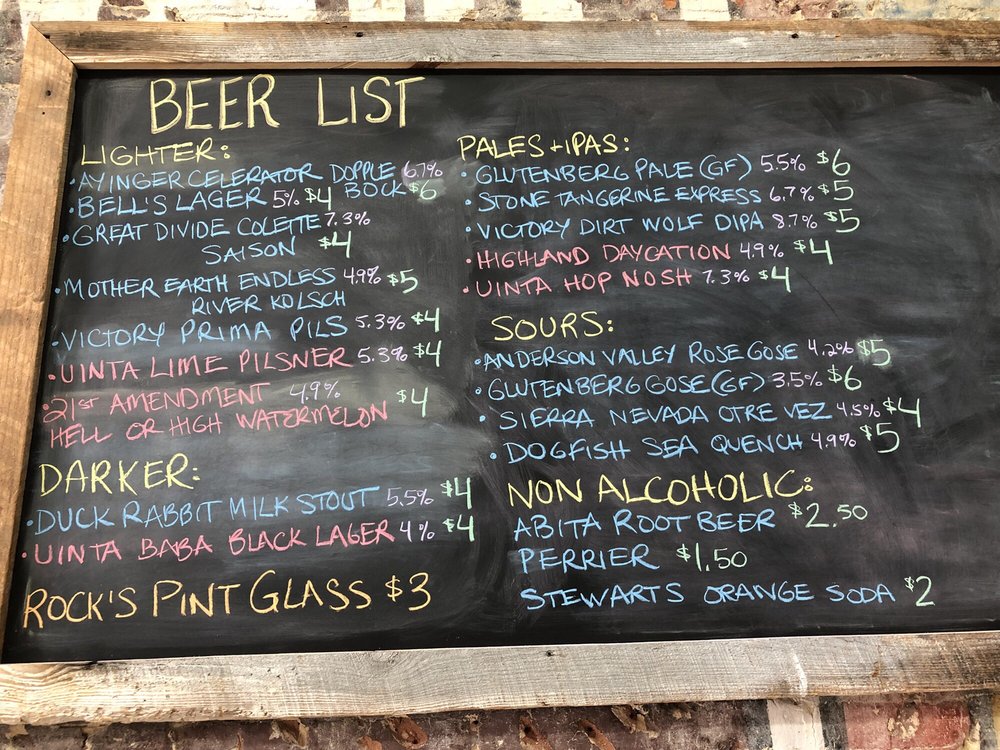 BEER LIST
LIGHTER:
• AYINGER CELERATOR DOPPLE 6.7%
BOCK $6
• BELL'S LAGER 5% $4
• GREAT DIVIDE COLETTE 7.3%
SAISON $4
• MOTHER EARTH ENDLESS 4.9% $5
RIVER KOLSCH
• VICTORY PRIMA PILS 5.3% $4
• UINTA LIME PILSNER 5.3% $4
• 21ST AMENDMENT 4.9% $4
HELL OR HIGH WATERMELON
DARKER:
• DUCK RABBIT MILK STOUT 5.5% $4
• UINTA BABA BLACK LAGER 4% $4
ROCK'S PINT GLASS $3
PALES + IPAS:
• GLUTENBERG PALE (GF) 5.5% $6
• STONE TANGERINE EXPRESS 6.7% $5
• VICTORY DIRT WOLF DIPA 8.7% $5
• HIGHLAND DAYCATION 4.9% $4
• UINTA HOP NOSH 7.3% $4
SOURS:
• ANDERSON VALLEY ROSE GOSE 4.2% $5
• GLUTENBERG GOSE (GF) 3.5% $6
• SIERRA NEVADA OTRE VEZ 4.5% $4
• DOGFISH SEA QUENCH 4.9% $5
NON ALCOHOLIC:
ABITA ROOT BEER $2.50
PERRIER $1.50
STEWARTS ORANGE SODA $2